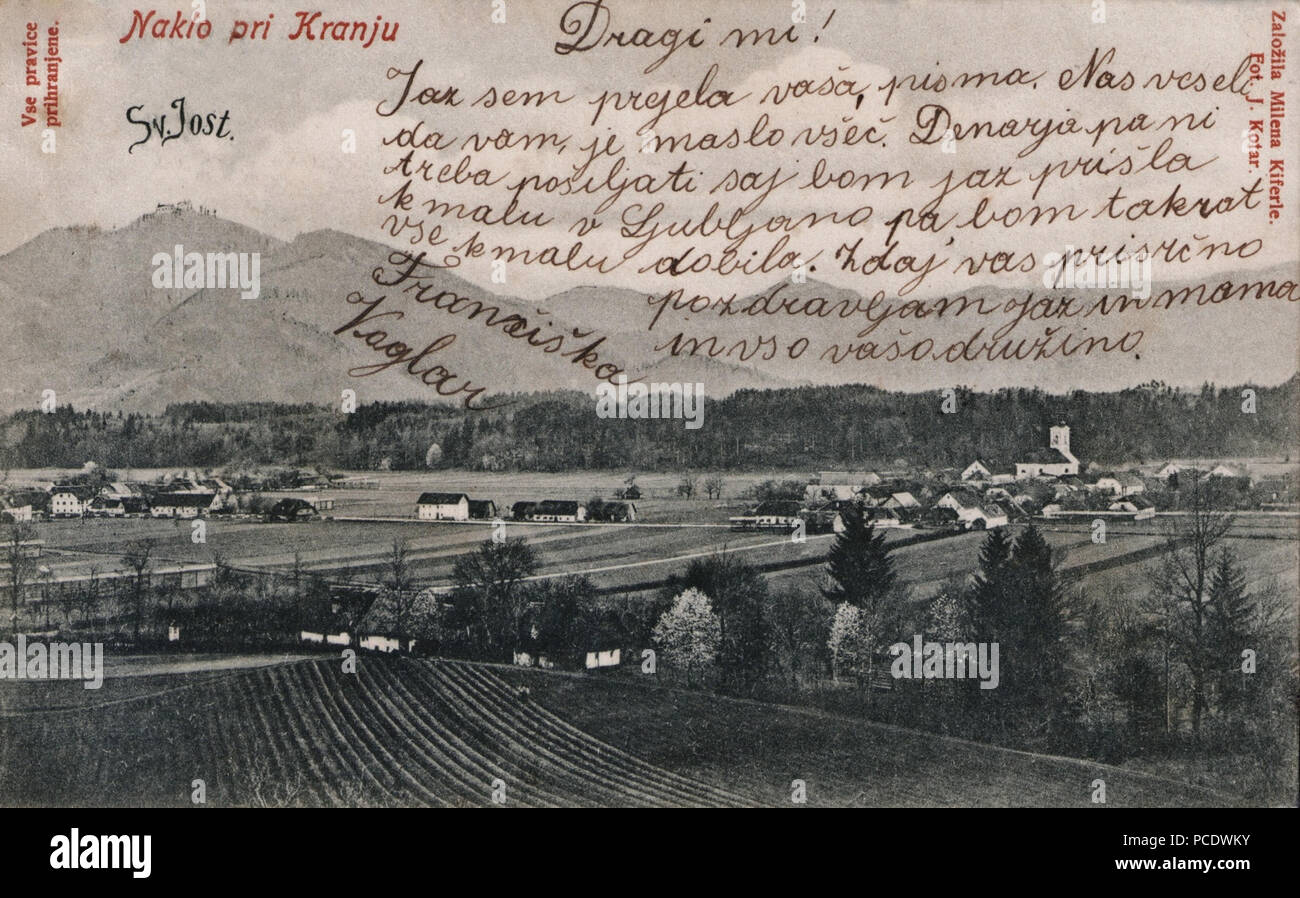 Vse pravice
prihranjene.
Naklo pri Kranju
Sv. Jost.
Založila Milena Kiferle.
Fot. J. Kotar.
Dragi mi!
Jaz sem prjela vaša, pisma. Nas veseli
da vam, je maslo všeč. Denarja pa ni
treba posiljati saj bom jaz prišla
kmalu v Ljubljano pa bom takrat
vse kmalu dobila. Zdaj vas prisrčno
pozdravljam jaz in mama
in vso vašo družino.
Frančiška
Voglar
alamy
Image ID: PCDWKY
www.alamy.com